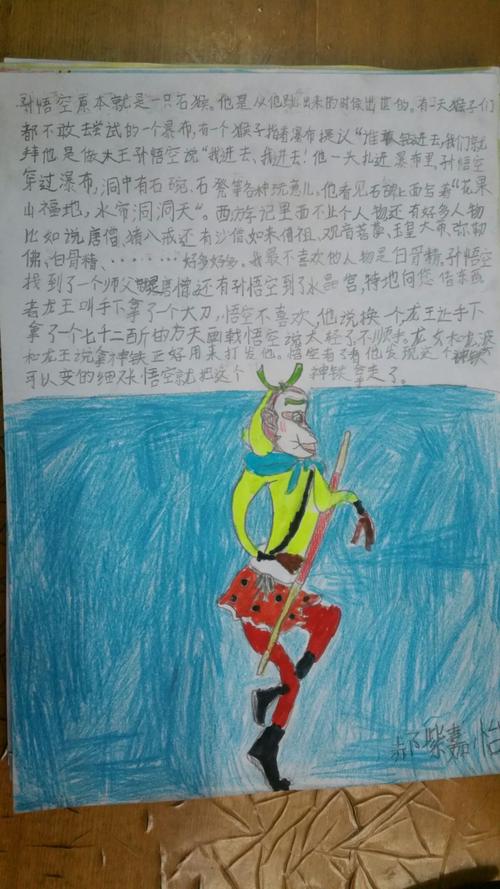 孙悟空原本就是一只石猴。他是从他跳出来的时候出世的。有一天猴子们
都不敢去尝试的一个瀑布,有个猴子指着瀑布提议“谁敢钻进去,我们就
拜他是做大王孙悟空说“我进去,我进去!他一头扎进瀑布里,孙悟空
穿过瀑布,洞中有石碗、石凳等各种玩意儿。他看见石碑上面写着“花果
山福地,水帘洞洞天”。西游记里面不止个人物还有好多人物
比如说唐僧,猪八戒还有沙僧,如来佛祖、观音菩萨、玉皇大帝、弥勒
佛、白骨精、………好多好多。我最不喜欢他人物是白骨精,孙悟空
找到了一个师父唐僧还有孙悟空到了水晶宫,特地向您借东西
者龙王叫手下拿了一个大刀,悟空不喜欢,他说换一个龙王让手下
拿了一个七千二百斤的方天画戟悟空说太轻了不顺手。龙女和龙婆
和龙王说拿神铁正好用来打发他。悟空看了看他发现这个神铁
可以变的细又长悟空就把这个 神铁拿走了。
郝紫嘉怡